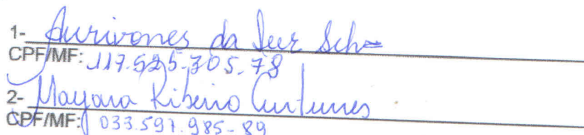 1- Aurivones da
CPF/MF: 117.525.305.78
2- Mayara Ribeiro Antunes
CPF/MF: 033.591.985-89